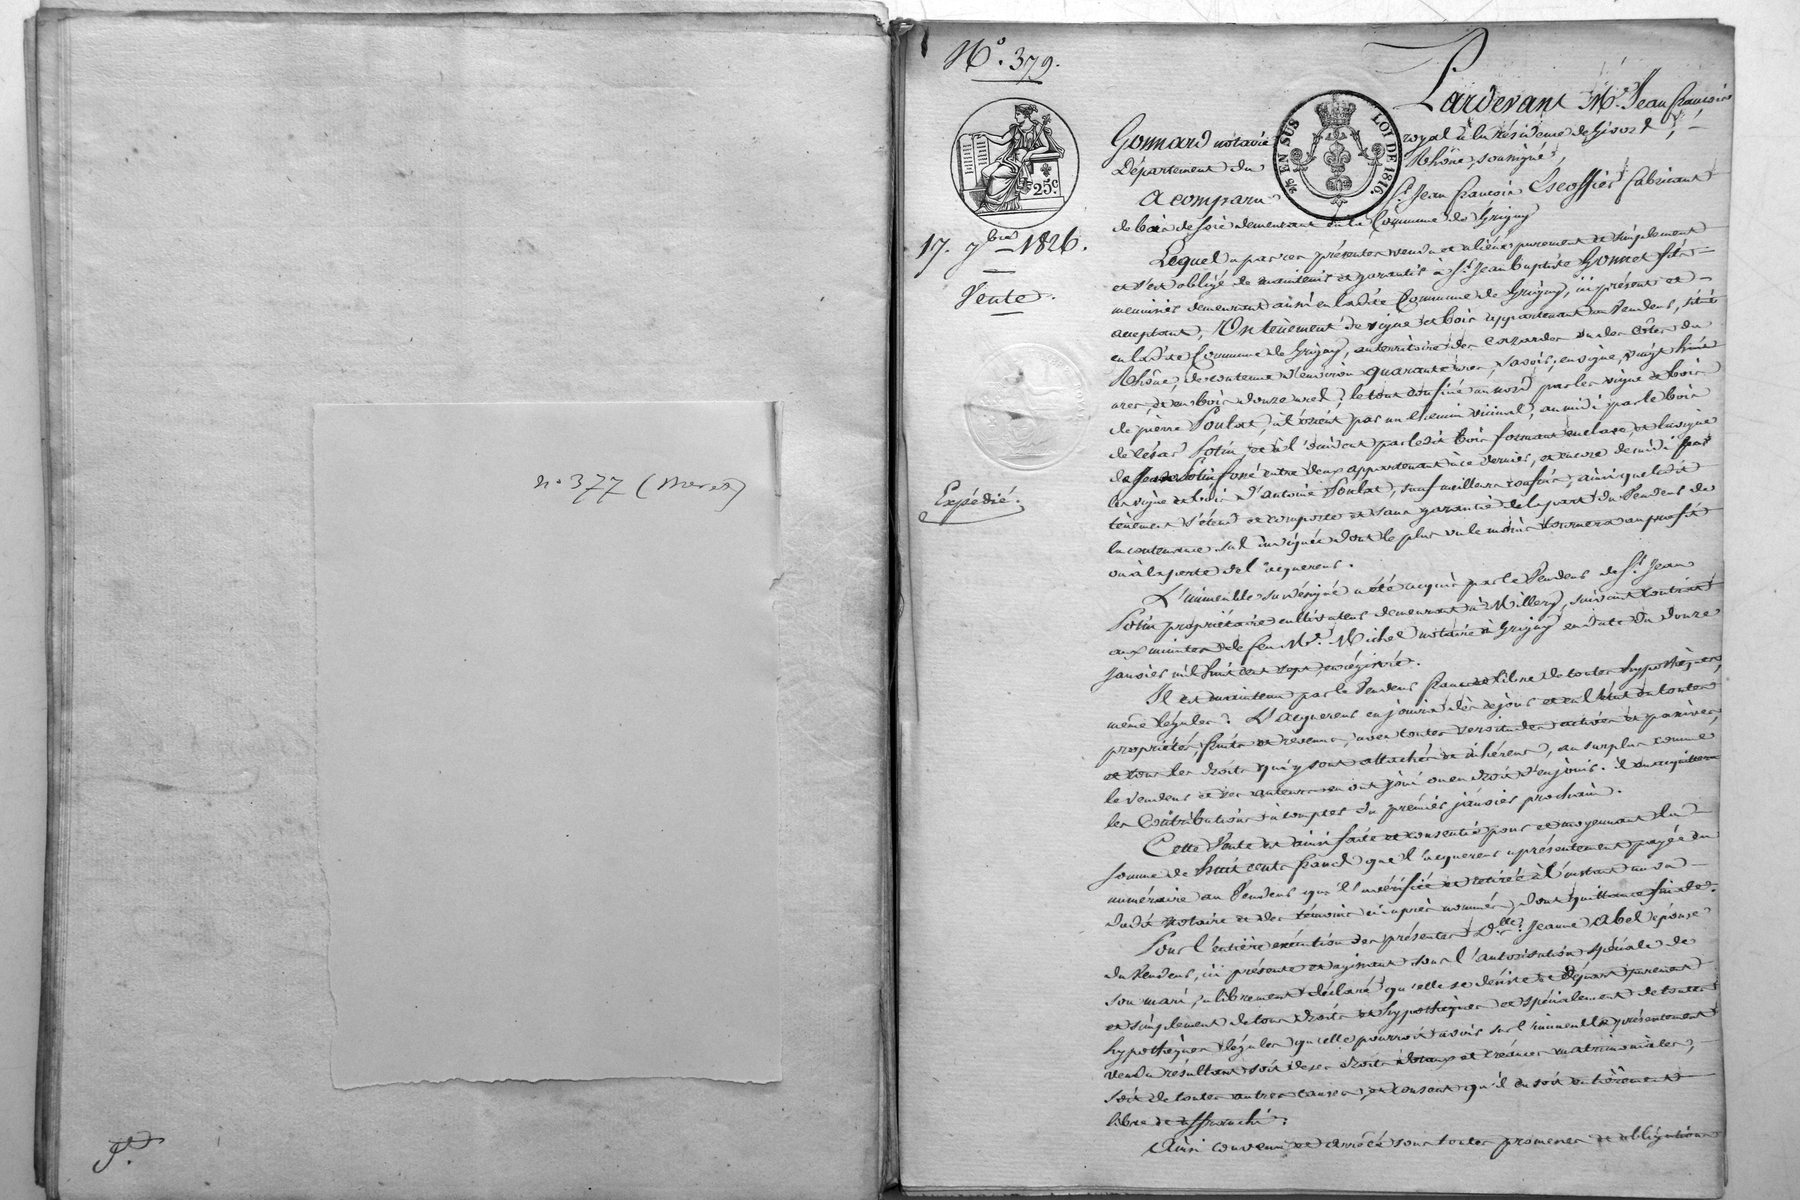 n° 377 (Meret)
N.° 379.
25.c
17. 7bre 1826.
Vente.
Expédié.
EN SUS LOI DE 1816.
Pardevant M.e Jean françois
Gonnard notaire royal à la résidence de Givors,
Département du Rhône, soussigné,
A comparu S.r Jean françois Escoffier fabricant
de bas de soie demeurant en la Commune de Grigny
Lequel a par ces présentes vendu et aliéné purement et simplement
et s'est obligé de maintenir et garantir à S.r Jean baptiste Gonnet fils
demeurant aussi en ladite Commune de Grigny, ici présent et
acceptant, Un tènement de vigne et bois appartenant au Vendeur, situé
en ladite Commune de Grigny, au territoire des ou des côtes du
Rhône, de contenue d'environ quarante ares, savoir, en vigne, vingt huit
ares, et en bois douze ares; le tout confiné au nord par les vigne et bois
de pierre Poulat, à l'orient par un chemin vicinal, au midi par le bois
de César Potin, et à l'occident par ledit bois formant enclave, et la vigne
de fossé entre deux appartenant à ce dernier, et encore de midi par
les vigne et bois d'antoine Poulat, sauf meilleurs confins, ainsi que ledit
tènement s'étend et comporte et sans garantie de la part du Vendeur de
la contenance sus indiquée dont le plus ou le moins tournera au profit
ou à la perte de l'acquereur.
L'immeuble sus désigné a été acquis par le Vendeur de S.r Jean
Potin propriétaire cultivateur demeurant à Millery, suivant contrat
aux minutes de feu M.e Michel notaire à Grigny en date du douze
janvier mil huit cent sept, enrégistré.
Il est maintenu par le Vendeur franc et libre de toutes hypothèques,
même légales. L'acquereur en jouira dès ce jour et en l'état en toutes
propriétés, fruits et revenus, avec toutes servitudes actives et passives,
et tous les droits qui y sont attachés et inhérens, au surplus comme
le Vendeur et ses auteurs en ont joui ou eu droit d'en jouir. il en acquittera
les Contributions à compter du premier janvier prochain.
Cette Vente est ainsi faite et consentie pour et moyennant la
somme de huit cents francs que l'acquereur a présentement payée en
numéraire au Vendeur qui l'a vérifiée et retirée à l'instant au vu
dudit notaire et des témoins ci-après nommés, dont quittance finale.
Pour l'entière exécution des présentes D.elle Jeanne Abel épouse
du Vendeur, ici présente et agissant sous l'autorisation spéciale de
son mari, a librement déclaré qu'elle se désiste et départ purement
et simplement de tous droits et hypothèques et spécialement de toutes
hypothèques légales qu'elle pourroit avoir sur l'immeuble présentement
vendu résultant soit de ses droits dotaux et créances matrimoniales,
soit de toutes autres causes, et consent qu'il en soit entièrement
libre et affranchi.
Ainsi convenu et arrêté sous toutes promesses et obligations